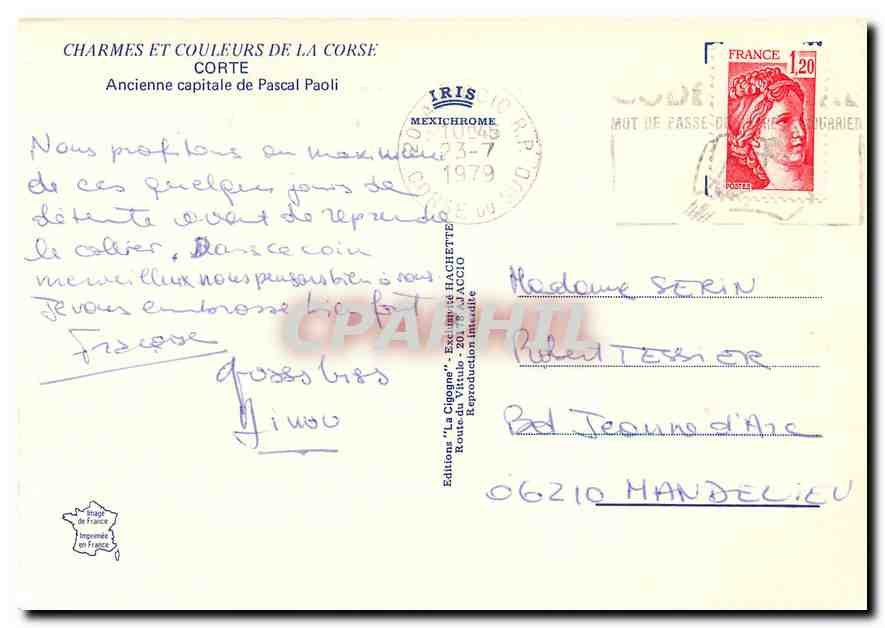 CHARMES ET COULEURS DE LA CORSE
CORTE
Ancienne capitale de Pascal Paoli
IRIS
MEXICHROME
FRANCE
1,20
POSTES
10H45
23-7
1979
CORSE DU SUD
MOT DE PASSE DE COURRIER
Nous profitons au maximum
de ces quelques jours de
détente avant de reprendre
le collier. Dans ce coin
merveilleux nous pensons bien à vous
Je vous embrasse bien fort
Françoise
gross biss
Ginou
Editions "La Cigogne" - Exclusivité HACHETTE
Route du Vittulo - 20178 AJACCIO
Reproduction interdite
Madame SERIN
Robert TESSIER
Bd Jeanne d'Arc
06210 MANDELIEU
Image
de France
Imprimée
en France
CPAPHIL